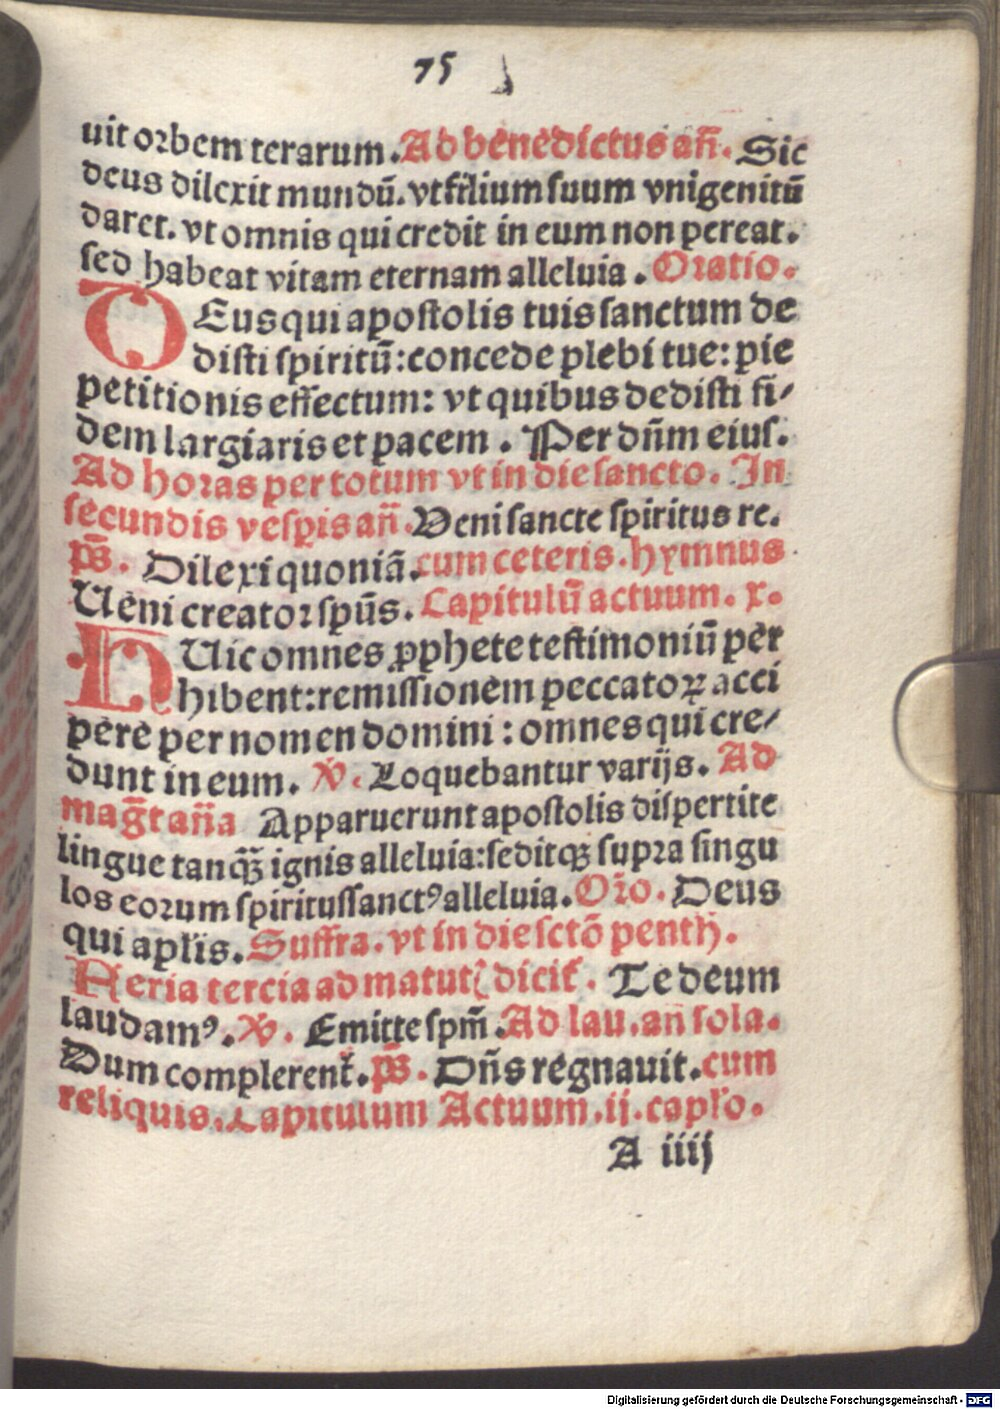 75
uit orbem terarum. Ad benedictus an̄. Sic
deus dilexit mundū. vt filium suum vnigenitū
daret. vt omnis qui credit in eum non pereat.
sed habeat vitam eternam alleluia. Oratio.
DEus qui apostolis tuis sanctum de
disti spiritū: concede plebi tue: pie
petitionis effectum: vt quibus dedisti fi/
dem largiaris et pacem. Per dn̄m eius.
Ad horas per totum vt in die sancto. In
secundis vespis an̄. Veni sancte spiritus re.
ps̄. Dilexi quoniā. cum ceteris. hymnus
Ueni creator spūs. Capitulū actuum. x.
HUic omnes ꝓphete testimoniū per
hibent: remissionem peccatoꝝ acci
pere per nomen domini: omnes qui cre/
dunt in eum. ℣. Loquebantur varijs. Ad
mag̅t an̄a Apparuerunt apostolis dispertite
lingue tanqꝫ̄ ignis alleluia: seditqꝫ supra singu
los eorum spiritussanctꝰ alleluia. Or̄o. Deus
qui aplīs. Suffra. vt in die sctō penth̄.
Feria tercia ad matut̉ dicit̉. Te deum
laudamꝰ. ℣. Emitte spm̄. Ad lau. an̄ sola.
Dum complerent̉. ps̄. Dn̄s regnauit. cum
reliquis. Capitulum Actuum. ij. capl̄o.
A iiij
Digitalisierung gefördert durch die Deutsche Forschungsgemeinschaft - DFG